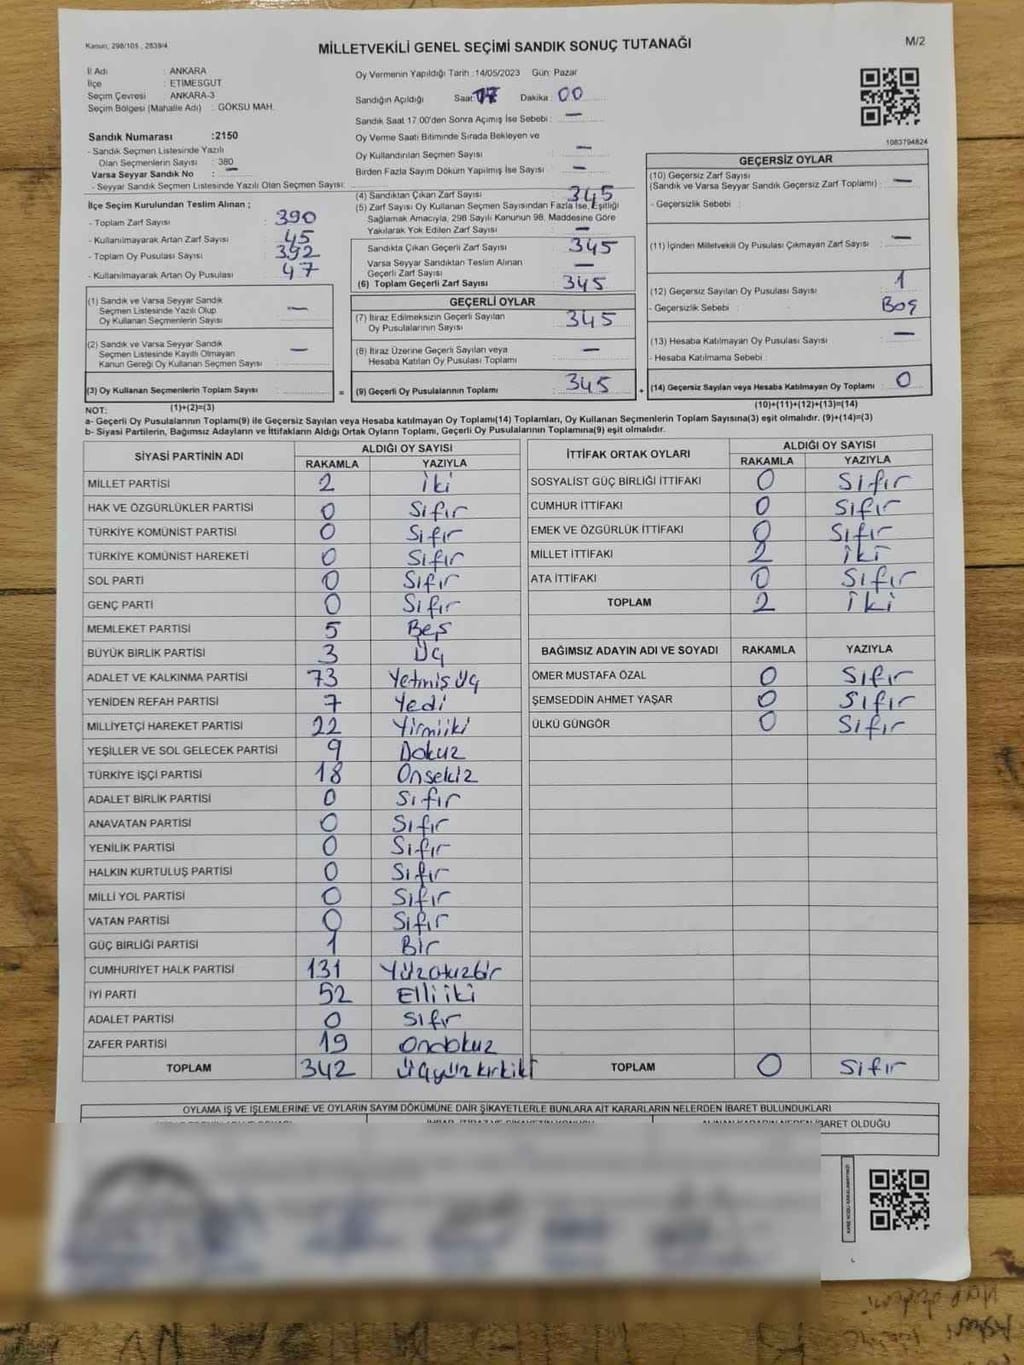 Kanun, 298/105 , 2839/4
MİLLETVEKİLİ GENEL SEÇİMİ SANDIK SONUÇ TUTANAĞI
M/2
İl Adı : ANKARA
İlçe : ETİMESGUT
Seçim Çevresi : ANKARA-3
Seçim Bölgesi (Mahalle Adı) : GÖKSU MAH.
Sandık Numarası :2150
- Sandık Seçmen Listesinde Yazılı
Olan Seçmenlerin Sayısı : 380
Varsa Seyyar Sandık No : —
- Seyyar Sandık Seçmen Listesinde Yazılı Olan Seçmen Sayısı:
Oy Vermenin Yapıldığı Tarih :14/05/2023 Gün: Pazar
Sandığın Açıldığı Saat: 17 Dakika : 00
Sandık Saat 17.00'den Sonra Açımış İse Sebebi : —
Oy Verme Saati Bitiminde Sırada Bekleyen ve
Oy Kullandırılan Seçmen Sayısı —
Birden Fazla Sayım Döküm Yapılmış İse Sayısı : —
1083794824
İlçe Seçim Kurulundan Teslim Alınan ;
- Toplam Zarf Sayısı : 390
- Kullanılmayarak Artan Zarf Sayısı : 45
- Toplam Oy Pusulası Sayısı : 392
- Kullanılmayarak Artan Oy Pusulası : 47
(1) Sandık ve Varsa Seyyar Sandık
Seçmen Listesinde Yazılı Olup
Oy Kullanan Seçmenlerin Sayısı : —
(2) Sandık ve Varsa Seyyar Sandık
Seçmen Listesinde Kayıtlı Olmayan
Kanun Gereği Oy Kullanan Seçmen Sayısı : —
(3) Oy Kullanan Seçmenlerin Toplam Sayısı :
(1)+(2)=(3)
(4) Sandıktan Çıkan Zarf Sayısı : 345
(5) Zarf Sayısı Oy Kullanan Seçmen Sayısından Fazla İse, Eşitliği
Sağlamak Amacıyla, 298 Sayılı Kanunun 98. Maddesine Göre
Yakılarak Yok Edilen Zarf Sayısı : —
Sandıkta Çıkan Geçerli Zarf Sayısı : 345
Varsa Seyyar Sandıktan Teslim Alınan
Geçerli Zarf Sayısı : —
(6) Toplam Geçerli Zarf Sayısı : 345
GEÇERLİ OYLAR
(7) İtiraz Edilmeksizin Geçerli Sayılan
Oy Pusulalarının Sayısı : 345
(8) İtiraz Üzerine Geçerli Sayılan veya
Hesaba Katılan Oy Pusulası Toplamı : —
= (9) Geçerli Oy Pusulalarının Toplamı : 345
GEÇERSİZ OYLAR
(10) Geçersiz Zarf Sayısı
(Sandık ve Varsa Seyyar Sandık Geçersiz Zarf Toplamı) : —
- Geçersizlik Sebebi :
(11) İçinden Milletvekili Oy Pusulası Çıkmayan Zarf Sayısı : —
(12) Geçersiz Sayılan Oy Pusulası Sayısı : 1
- Geçersizlik Sebebi : Boş
(13) Hesaba Katılmayan Oy Pusulası Sayısı : —
- Hesaba Katılmama Sebebi :
+ (14) Geçersiz Sayılan veya Hesaba Katılmayan Oy Toplamı : 0
(10)+(11)+(12)+(13)=(14)
NOT:
a- Geçerli Oy Pusulalarının Toplamı(9) ile Geçersiz Sayılan veya Hesaba katılmayan Oy Toplamı(14) Toplamları, Oy Kullanan Seçmenlerin Toplam Sayısına(3) eşit olmalıdır. (9)+(14)=(3)
b- Siyasi Partilerin, Bağımsız Adayların ve İttifakların Aldığı Ortak Oyların Toplamı, Geçerli Oy Pusulalarının Toplamına(9) eşit olmalıdır.
SİYASİ PARTİNİN ADI ALDIĞI OY SAYISI
RAKAMLA YAZIYLA
MİLLET PARTİSİ 2 İki
HAK VE ÖZGÜRLÜKLER PARTİSİ 0 Sıfır
TÜRKİYE KOMÜNİST PARTİSİ 0 Sıfır
TÜRKİYE KOMÜNİST HAREKETİ 0 Sıfır
SOL PARTİ 0 Sıfır
GENÇ PARTİ 0 Sıfır
MEMLEKET PARTİSİ 5 Beş
BÜYÜK BİRLİK PARTİSİ 3 Üç
ADALET VE KALKINMA PARTİSİ 73 Yetmiş Üç
YENİDEN REFAH PARTİSİ 7 Yedi
MİLLİYETÇİ HAREKET PARTİSİ 22 Yirmiiki
YEŞİLLER VE SOL GELECEK PARTİSİ 9 Dokuz
TÜRKİYE İŞÇİ PARTİSİ 18 Onsekiz
ADALET BİRLİK PARTİSİ 0 Sıfır
ANAVATAN PARTİSİ 0 Sıfır
YENİLİK PARTİSİ 0 Sıfır
HALKIN KURTULUŞ PARTİSİ 0 Sıfır
MİLLİ YOL PARTİSİ 0 Sıfır
VATAN PARTİSİ 0 Sıfır
GÜÇ BİRLİĞİ PARTİSİ 1 Bir
CUMHURİYET HALK PARTİSİ 131 Yüzotuzbir
İYİ PARTİ 52 Elli iki
ADALET PARTİSİ 0 Sıfır
ZAFER PARTİSİ 19 Ondokuz
TOPLAM 342 Üçyüzkırkiki
İTTİFAK ORTAK OYLARI ALDIĞI OY SAYISI
RAKAMLA YAZIYLA
SOSYALİST GÜÇ BİRLİĞİ İTTİFAKI 0 Sıfır
CUMHUR İTTİFAKI 0 Sıfır
EMEK VE ÖZGÜRLÜK İTTİFAKI 0 Sıfır
MİLLET İTTİFAKI 2 İki
ATA İTTİFAKI 0 Sıfır
TOPLAM 2 İki
BAĞIMSIZ ADAYIN ADI VE SOYADI RAKAMLA YAZIYLA
ÖMER MUSTAFA ÖZAL 0 Sıfır
ŞEMSEDDİN AHMET YAŞAR 0 Sıfır
ÜLKÜ GÜNGÖR 0 Sıfır
TOPLAM 0 Sıfır
OYLAMA İŞ VE İŞLEMLERİNE VE OYLARIN SAYIM DÖKÜMÜNE DAİR ŞİKAYETLERLE BUNLARA AİT KARARLARIN NELERDEN İBARET BULUNDUKLARI
İBARET OLDUĞU